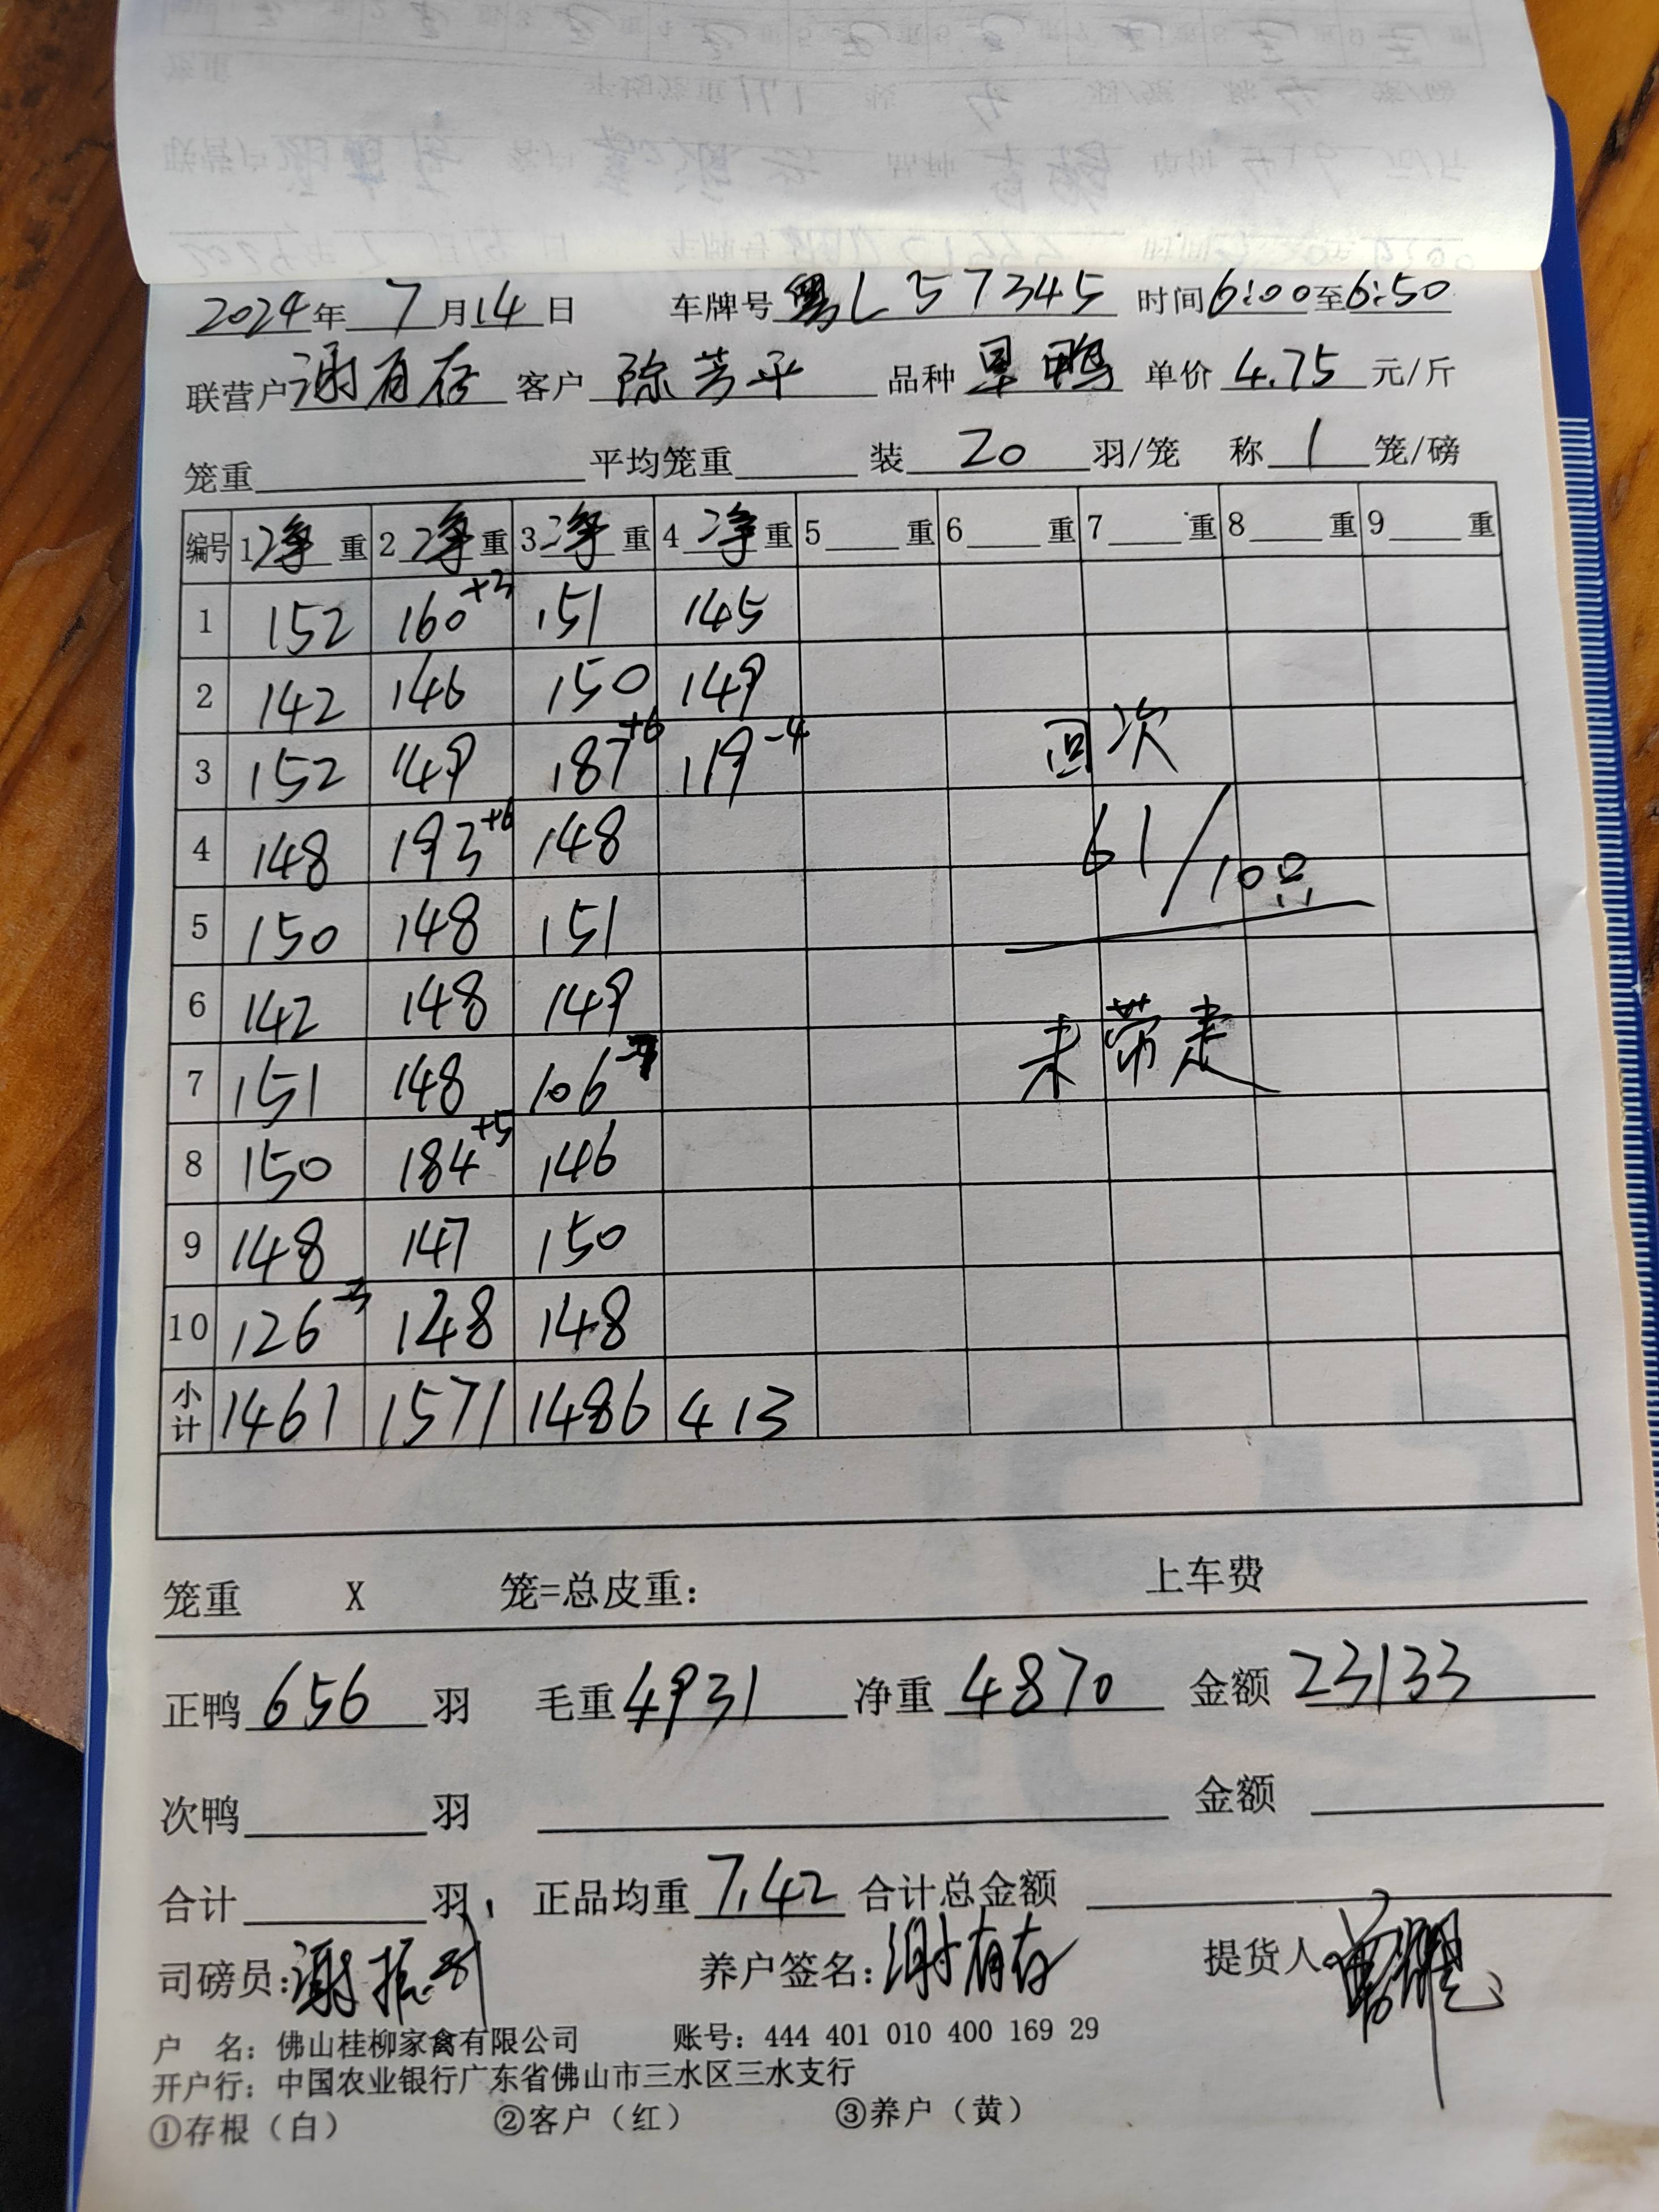 2024年 7 月 14 日 车牌号 粤L57345 时间 6:00 至 6:50
联营户 谢有存 客户 陈芳平 品种 旱鸭 单价 4.75 元/斤
笼重 平均笼重 装 20 羽/笼 称 1 笼/磅
编号 1 净 重 2 净 重 3 净 重 4 净 重 5 重 6 重 7 重 8 重 9 重
1 152 160+3 151 145
2 142 146 150 149
3 152 149 187+6 119-4 回次
4 148 193+6 148 61/10只
5 150 148 151
6 142 148 149
7 151 148 106 未带走
8 150 184+5 146
9 148 147 150
10 126-3 148 148
小计 1461 1571 1486 413
笼重 X 笼=总皮重: 上车费
正鸭 656 羽 毛重 4931 净重 4870 金额 23133
次鸭 羽 金额
合计 羽, 正品均重 7.42 合计总金额
司磅员: 谢振 养户签名: 谢有存 提货人
户 名: 佛山桂柳家禽有限公司 账号: 444 401 010 400 169 29
开户行: 中国农业银行广东省佛山市三水区三水支行
①存根（白） ②客户（红） ③养户（黄）